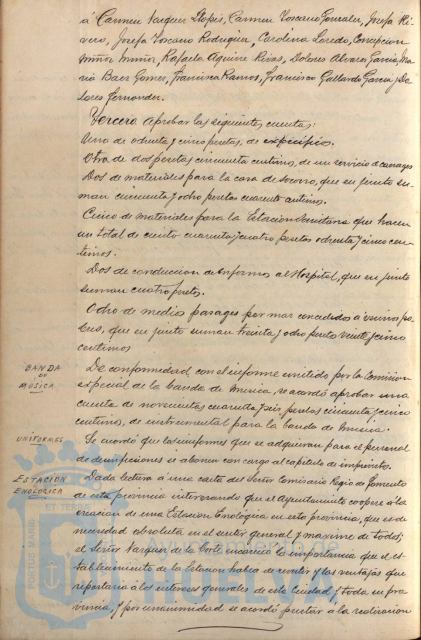 á Carmen Vazquez Stopis, Carmen Voscano Gonzalez, Josefa Ri-
vero, Josefa Toscano Rodriguez, Carolina Loredo, Concepcion
Muñoz Muñoz, Rafaela Aguirre Rivas, Dolores Alvarez Garcia, Ma-
ria Baez Gomez, Francisca Ramos, Francisco Gallardo Garcia y Do-
lores Fernandez.
Tercero. Aprobar las siguientes cuentas:
Una de ochenta y cinco pesetas, de específicos.
Otra de dos pesetas cincuenta centimos, de un servicio de carruages
Dos de materiales para la casa de socorro, que en junto su-
man cincuenta y ocho pesetas cuarenta centimos.
Cinco de materiales para la Estacion Sanitaria que hacen
un total de ciento cuarenta y cuatro pesetas ochenta y cinco cen-
timos.
Dos de conduccion de enfermos al Hospital, que en junto
suman cuatro pesetas.
Ocho de medios pasages por mar concedidos á vecinos po-
bres, que en junto suman treinta y ocho pesetas veinte y cinco
centimos
BANDA
DE
MÚSICA
De conformidad con el informe emitido por la Comision
especial de la banda de musica, se acordó aprobar una
cuenta de novecientas cuarenta y seis pesetas cincuenta y cinco
centimos, de instrumental para la banda de musica.
UNIFORMES
Se acordó que los uniformes que se adquieran para el personal
de se abonen con cargo al capitulo de imprevistos.
ESTACION
ENOLÓGICA
Dada lectura á una carta del Señor Comisario Regio de Fomento
de esta provincia interesando que el Ayuntamiento coopere á la
creacion de una Estacion Enológica en esta provincia, que es de
necesidad absoluta en el sentir general y maxime de todos;
el Señor Vazquez de la Corte encareció la importancia que el es-
tablecimiento de la Estacion habia de revestir y las ventajas que
reportaria á los intereses generales de esta Ciudad y toda su pro-
vincia, y por unanimidad se acordó prestar á la realizacion